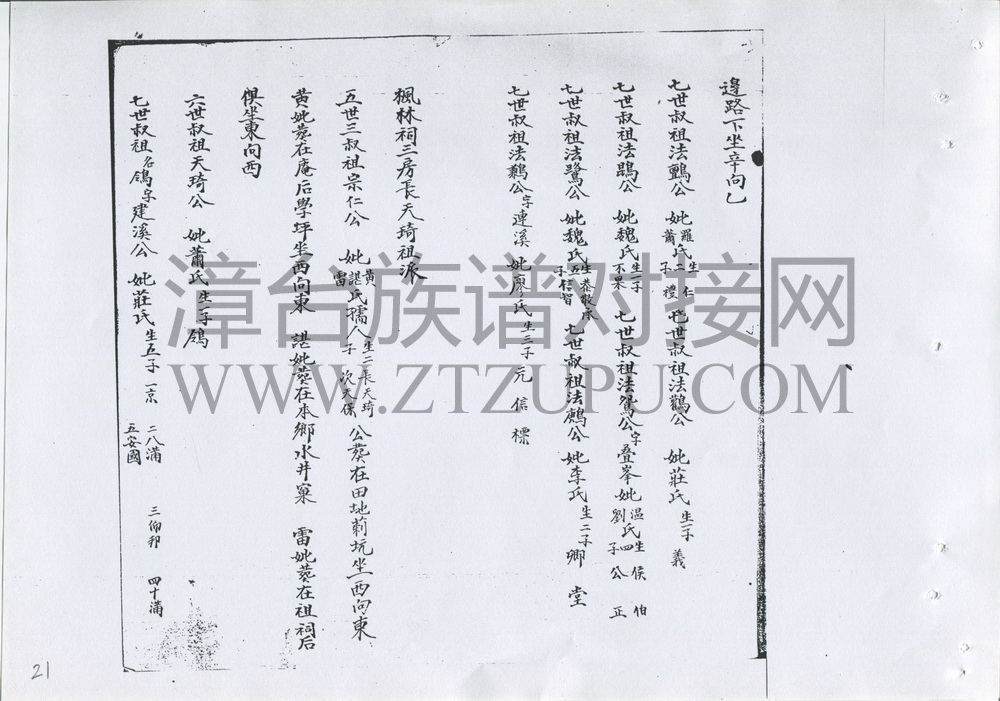 邉路下坐辛向乙
七世叔祖法鸜公 妣羅蕭氏生二子仁禮 七世叔祖法鸛公 妣莊氏生一子義
七世叔祖法鵾公 妣魏氏生一子不果 七世叔祖法鴛公字叠峯妣温劉氏生四子侯伯公正
七世叔祖法鷺公 妣魏氏生五子恭敬信智 七世叔祖法鷓公妣李氏生二子卿堂
七世叔祖法鸘公字連溪 妣廖氏生三子元信標
楓林祠三房長天琦祖派
五世三叔祖宗仁公 妣黄諶雷氏孺人生二子長天琦次天保 公葵在田地莿坑坐西向東
黄妣葵在庵后學坪坐西向東 諶妣葵在本鄉水井窠 雷妣葵在祖祠后
俱坐東向西
六世叔祖天琦公 妣蕭氏生一子鴿
七世叔祖名鴿字建溪公 妣莊氏生五子一京二八滿三仰邦四十滿五安國
漳台族谱对接网
WWW.ZTZUPU.COM
21